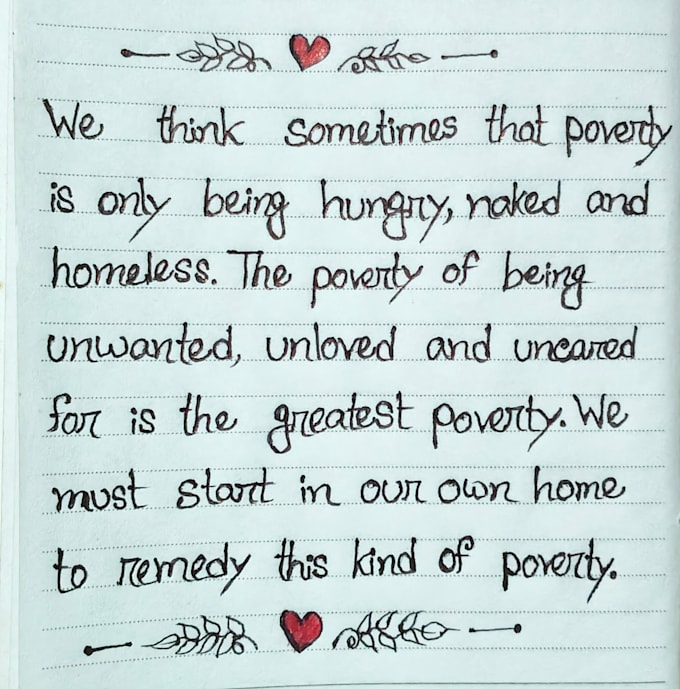 We think sometimes that poverty
is only being hungry, naked and
homeless. The poverty of being
unwanted, unloved and uncared
for is the greatest poverty. We
must start in our own home
to remedy this kind of poverty.